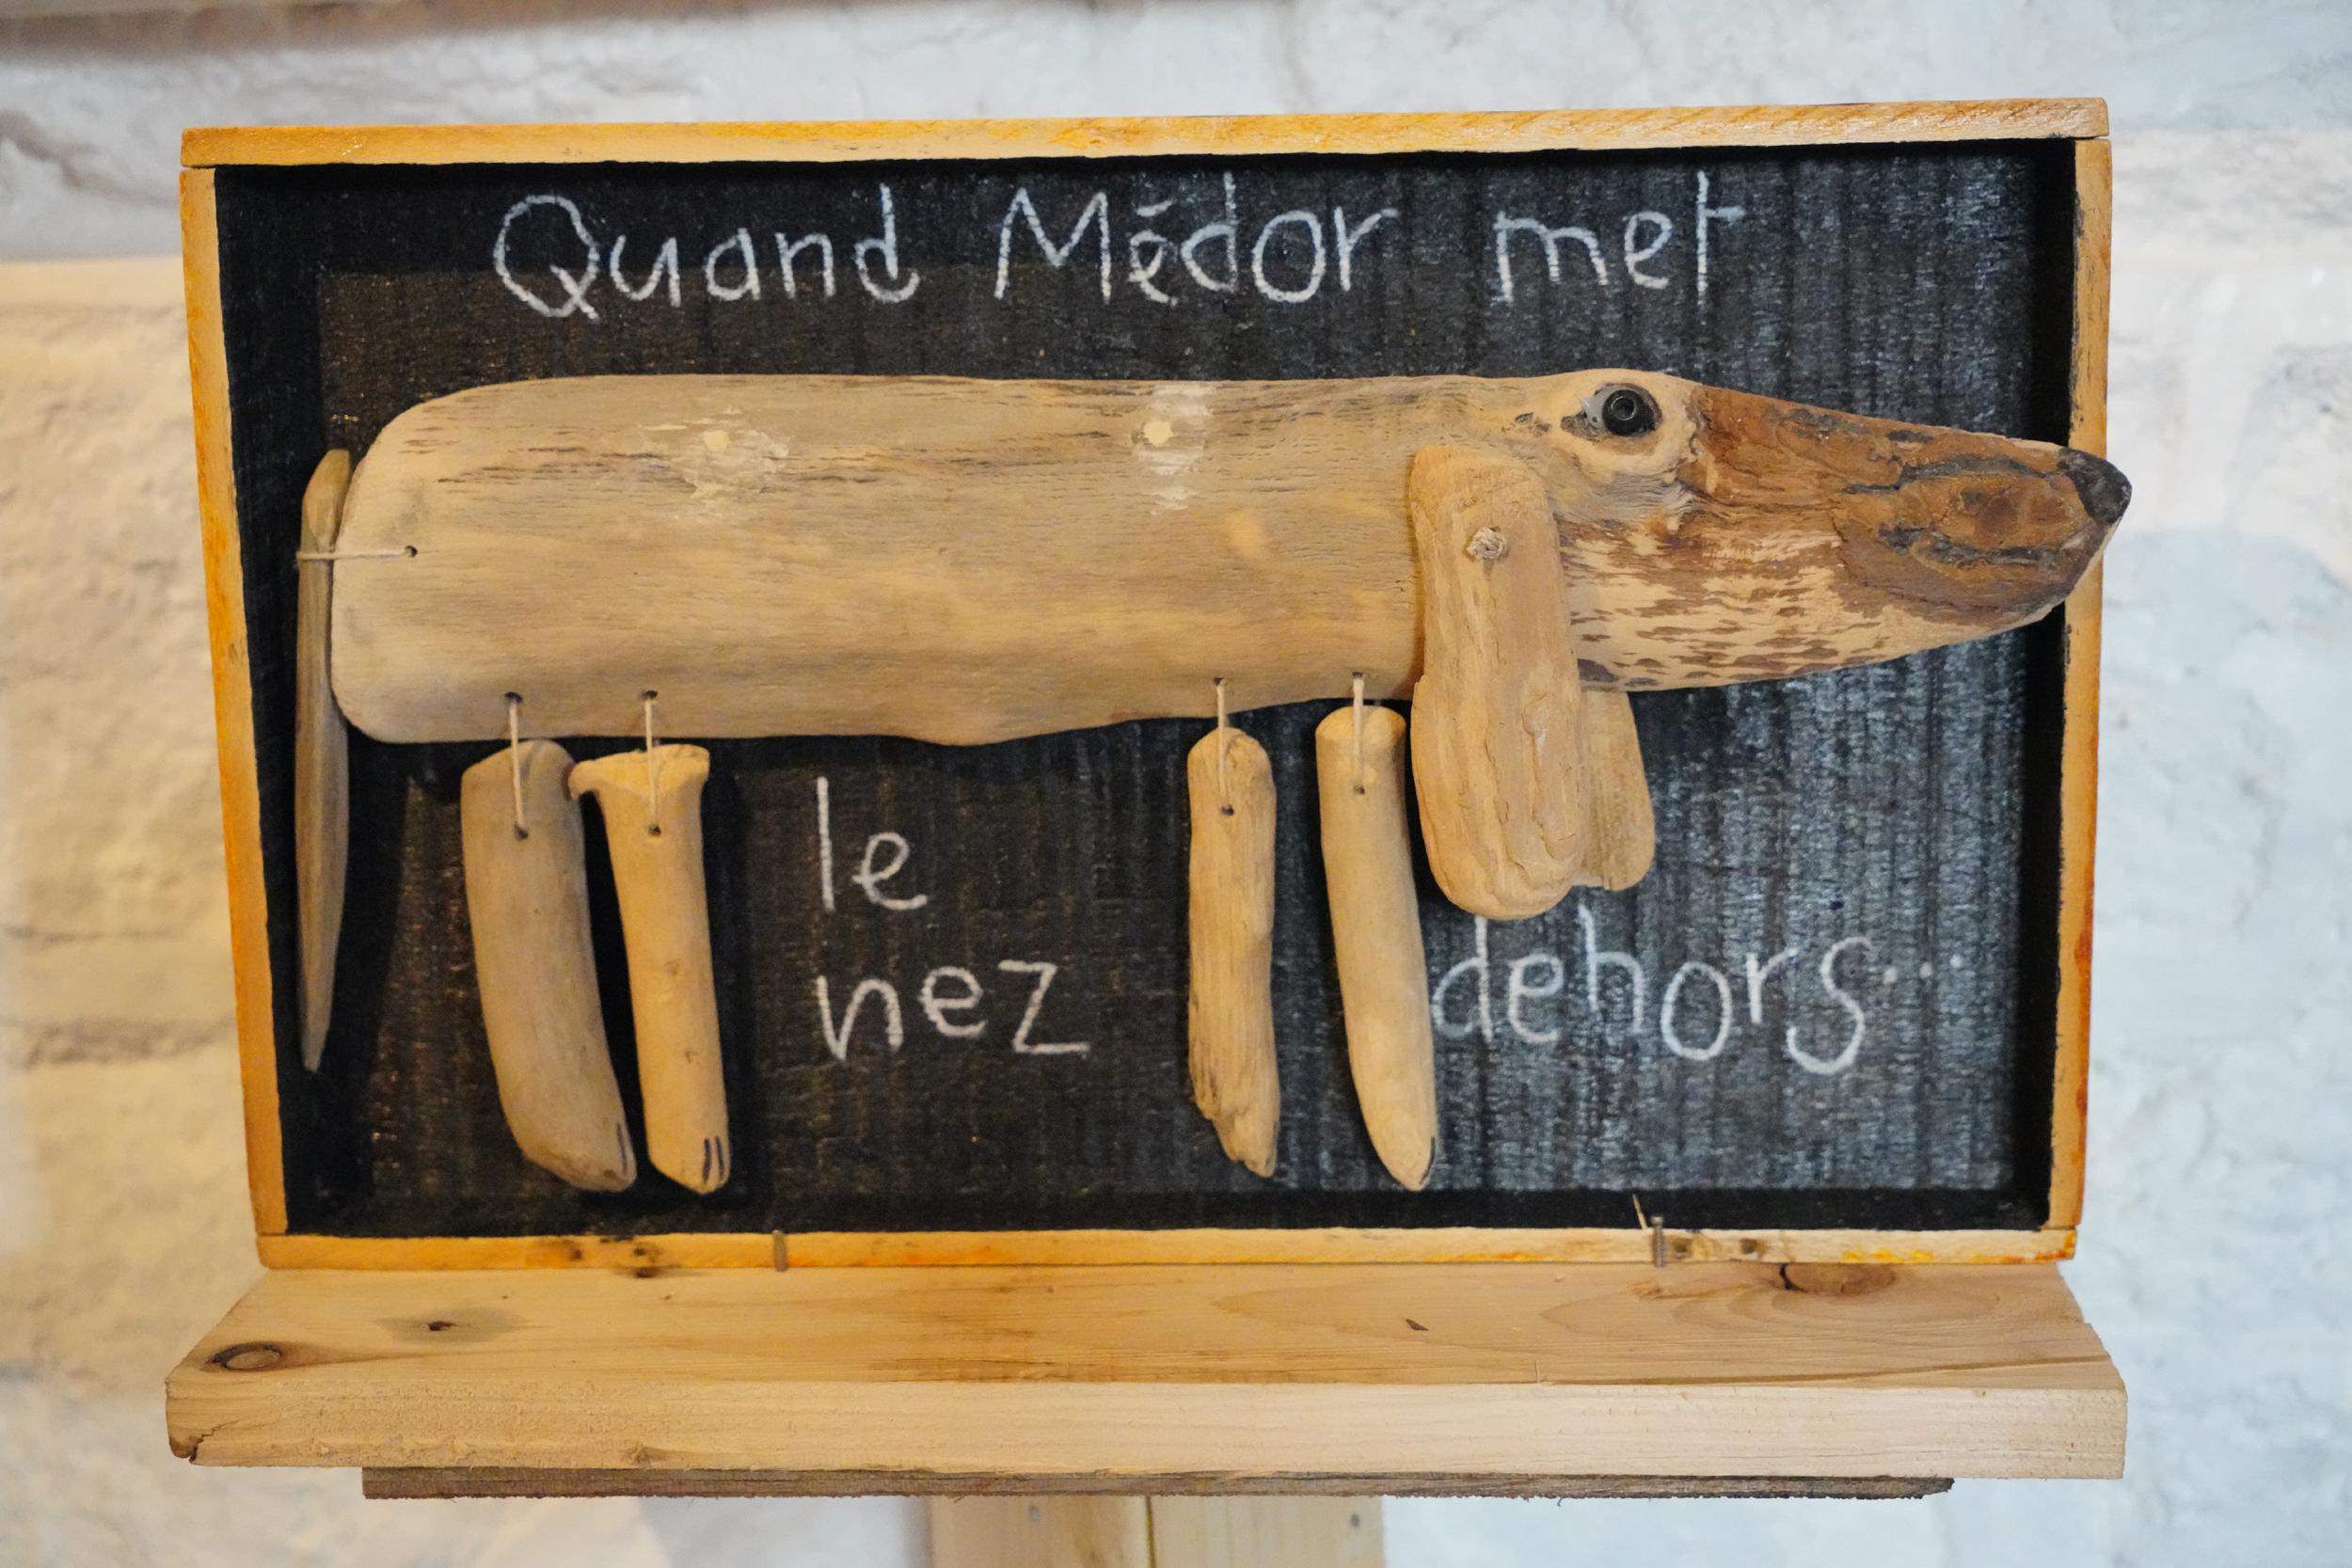 Quand Médor met
le
nez
dehors...